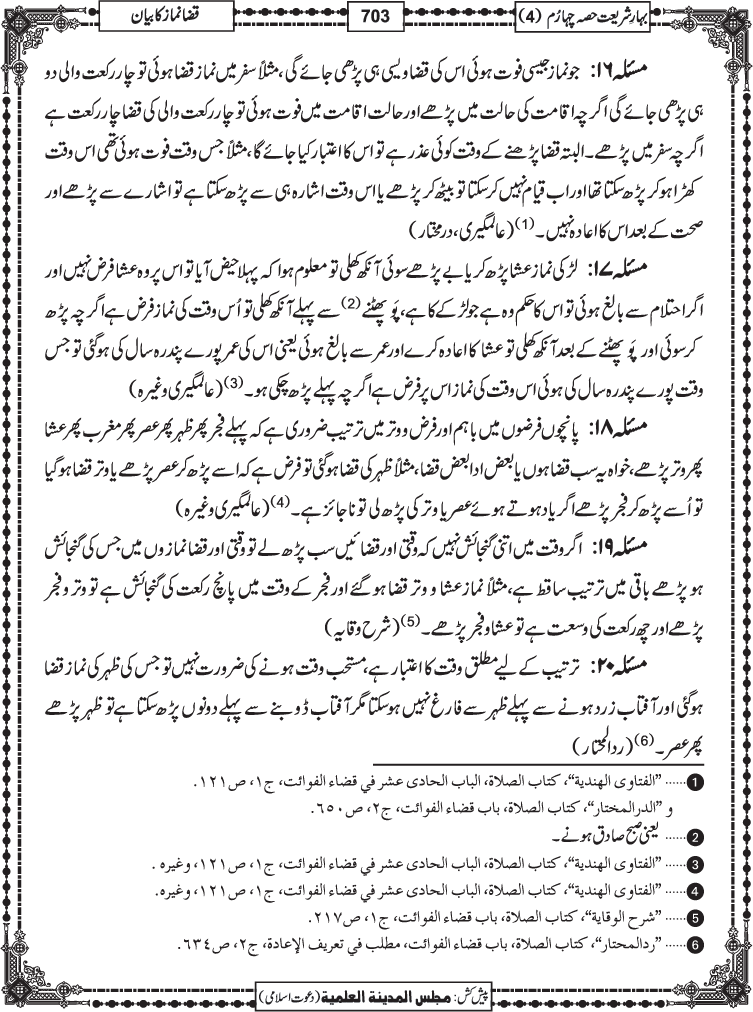 بہارِ شریعت حصہ چہارم (4)
703
قضا نماز کا بیان
مسئلہ ۱۶: جو نماز جیسی فوت ہوئی اس کی قضا ویسی ہی پڑھی جائے گی، مثلاً سفر میں نماز قضا ہوئی تو چار رکعت والی دو
ہی پڑھی جائے گی اگرچہ اقامت کی حالت میں پڑھے اور حالت اقامت میں فوت ہوئی تو چار رکعت والی کی قضا چار رکعت ہے
اگرچہ سفر میں پڑھے۔ البتہ قضا پڑھنے کے وقت کوئی عذر ہے تو اس کا اعتبار کیا جائے گا، مثلاً جس وقت فوت ہوئی تھی اس وقت
کھڑا ہو کر پڑھ سکتا تھا اور اب قیام نہیں کر سکتا تو بیٹھ کر پڑھے یا اس وقت اشارہ ہی سے پڑھ سکتا ہے تو اشارے سے پڑھے اور
صحت کے بعد اس کا اعادہ نہیں۔(1) (عالمگیری، درمختار)
مسئلہ ۱۷: لڑکی نماز عشا پڑھ کر یا بے پڑھے سوئی آنکھ کھلی تو معلوم ہوا کہ پہلا حیض آیا تو اس پر وہ عشا فرض نہیں اور
اگر احتلام سے بالغ ہوئی تو اس کا حکم وہ ہے جو لڑکے کا ہے، پَو پھٹنے (2) سے پہلے آنکھ کھلی تو اُس وقت کی نماز فرض ہے اگرچہ پڑھ
کر سوئی اور پَو پھٹنے کے بعد آنکھ کھلی تو عشا کا اعادہ کرے اور عمر سے بالغ ہوئی یعنی اس کی عمر پورے پندرہ سال کی ہوگئی تو جس
وقت پورے پندرہ سال کی ہوئی اس وقت کی نماز اس پر فرض ہے اگرچہ پہلے پڑھ چکی ہو۔(3) (عالمگیری وغیرہ)
مسئلہ ۱۸: پانچوں فرضوں میں باہم اور فرض و وتر میں ترتیب ضروری ہے کہ پہلے فجر پھر ظہر پھر عصر پھر مغرب پھر عشا
پھر وتر پڑھے، خواہ یہ سب قضا ہوں یا بعض ادا بعض قضا، مثلاً ظہر کی قضا ہوگئی تو فرض ہے کہ اسے پڑھ کر عصر پڑھے یا وتر قضا ہوگیا
تو اُسے پڑھ کر فجر پڑھے اگر یاد ہوتے ہوئے عصر یا وتر کی پڑھ لی تو ناجائز ہے۔(4) (عالمگیری وغیرہ)
مسئلہ ۱۹: اگر وقت میں اتنی گنجائش نہیں کہ وقتی اور قضائیں سب پڑھ لے تو وقتی اور قضا نمازوں میں جس کی گنجائش
ہو پڑھے باقی میں ترتیب ساقط ہے، مثلاً نماز عشا و وتر قضا ہو گئے اور فجر کے وقت میں پانچ رکعت کی گنجائش ہے تو وتر و فجر
پڑھے اور چھ رکعت کی وسعت ہے تو عشا و فجر پڑھے۔(5) (شرح وقایہ)
مسئلہ ۲۰: ترتیب کے لیے مطلق وقت کا اعتبار ہے، مستحب وقت ہونے کی ضرورت نہیں تو جس کی ظہر کی نماز قضا
ہوگئی اور آفتاب زرد ہونے سے پہلے ظہر سے فارغ نہیں ہو سکتا مگر آفتاب ڈوبنے سے پہلے دونوں پڑھ سکتا ہے تو ظہر پڑھے
پھر عصر۔(6) (ردالمحتار)
1 ...... ”الفتاوی الھندیة“، کتاب الصلاة، الباب الحادی عشر فی قضاء الفوائت، ج۱، ص۱۲۱.
و ”الدرالمختار“، کتاب الصلاة، باب قضاء الفوائت، ج۲، ص۶۵۰.
2 ...... یعنی صبح صادق ہونے۔
3 ...... ”الفتاوی الھندیة“، کتاب الصلاة، الباب الحادی عشر في قضاء الفوائت، ج۱، ص۱۲۱، وغیرہ .
4 ...... ”الفتاوی الھندیة“، کتاب الصلاة، الباب الحادی عشر في قضاء الفوائت، ج۱، ص۱۲۱، وغیرہ.
5 ...... ”شرح الوقایة“، کتاب الصلاة، باب قضاء الفوائت، ج۱، ص۲۱۷.
6 ...... ”ردالمحتار“، کتاب الصلاة، باب قضاء الفوائت، مطلب في تعریف الإعادة، ج۲، ص۶۳۴.
پیش کش: مجلس المدینة العلمیة (دعوت اسلامی)